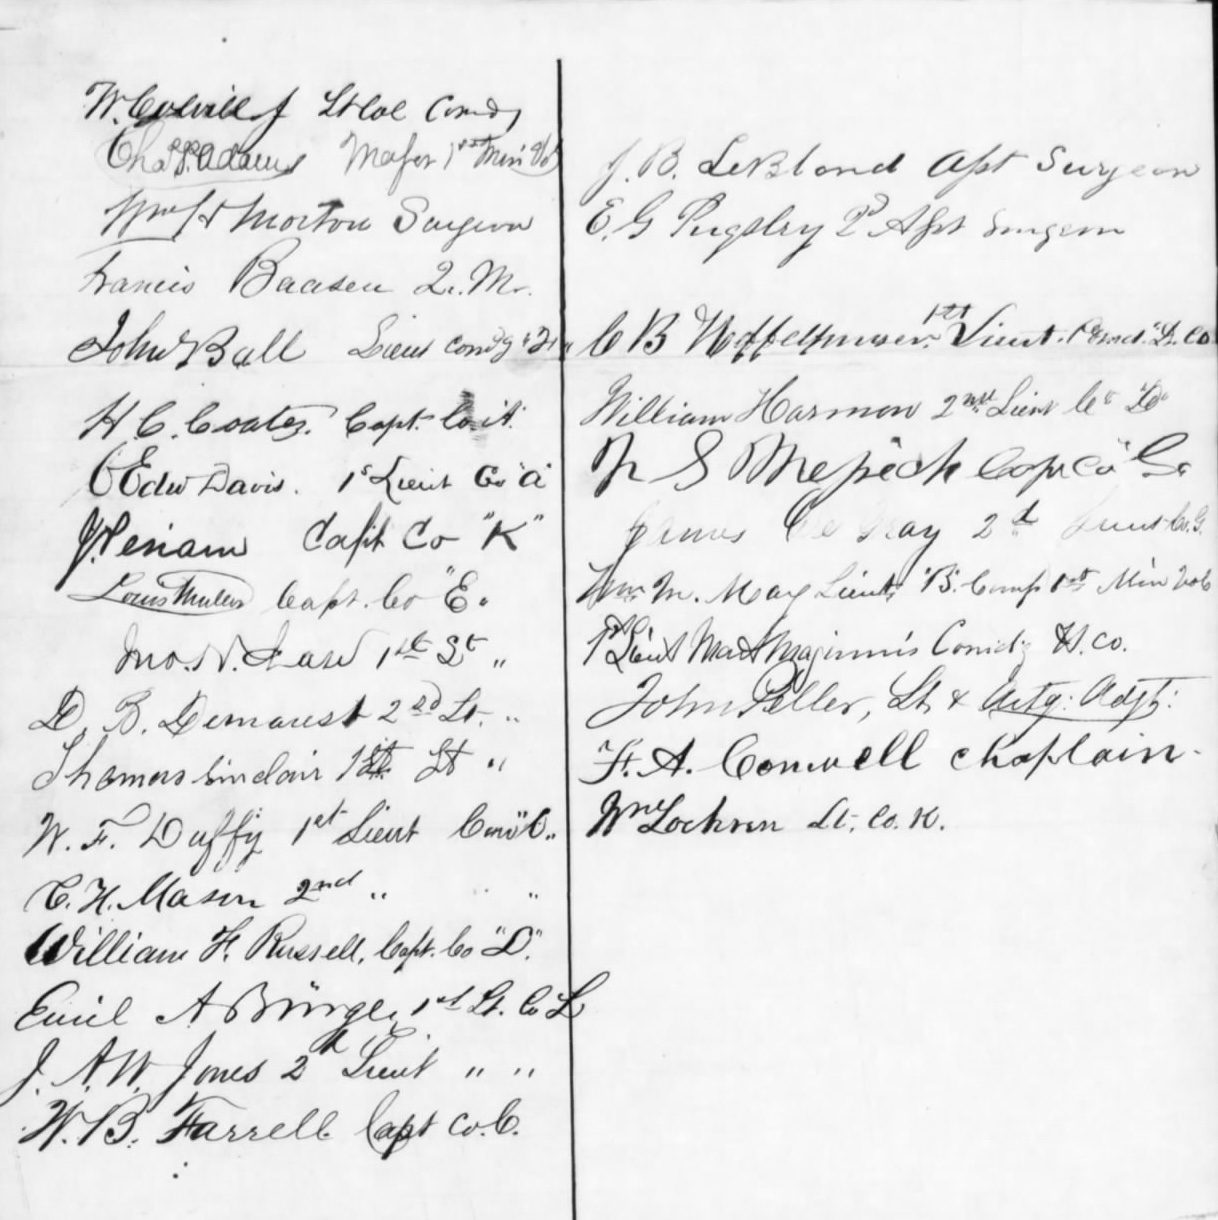 W. Colvill Jr Lt Col Comdg
Chas P. Adams Major 1st Min Vol
Wm H Morton Surgeon
Francis Baasen Q. M.
John Ball Lieut Comdg "F"
H. C. Coates. Capt. Co "A"
Edw Davis. 1st Lieut Co "A"
J Periam Capt Co "K"
Louis Muller Capt. Co "E"
Jno. N. 1st Lt "
D. B. Demarest 2nd Lt. "
Thomas Sinclair 1st Lt "
W. F. Duffy 1st Lieut Com "C"
C. H. Mason 2nd " "
William F. Russell, Capt. Co "L"
Emil A Bürger 1st Lt. Co L
J. A. W. Jones 2d Lieut " "
W. B. Farrell Capt Co. C.
J. B. LeBlond Asst Surgeon
E. G Pugsley 2d Asst Surgeon
C B Heffelfinger 1st Lieut. Comd. "D. Co
William Harmon 2nd Lieut Co "D"
N S Messick Capt Co "G"
James De Gray 2d Lieut Co. G.
Wm M. May Lieut. "B" Comp 1st Min Vols
1st Lieut Mart Maginnis Comdg H. Co.
John Peller, Lt & Actg. Adjt.
F. A. Conwell Chaplain.
Wm Lochren Lt. Co. K.